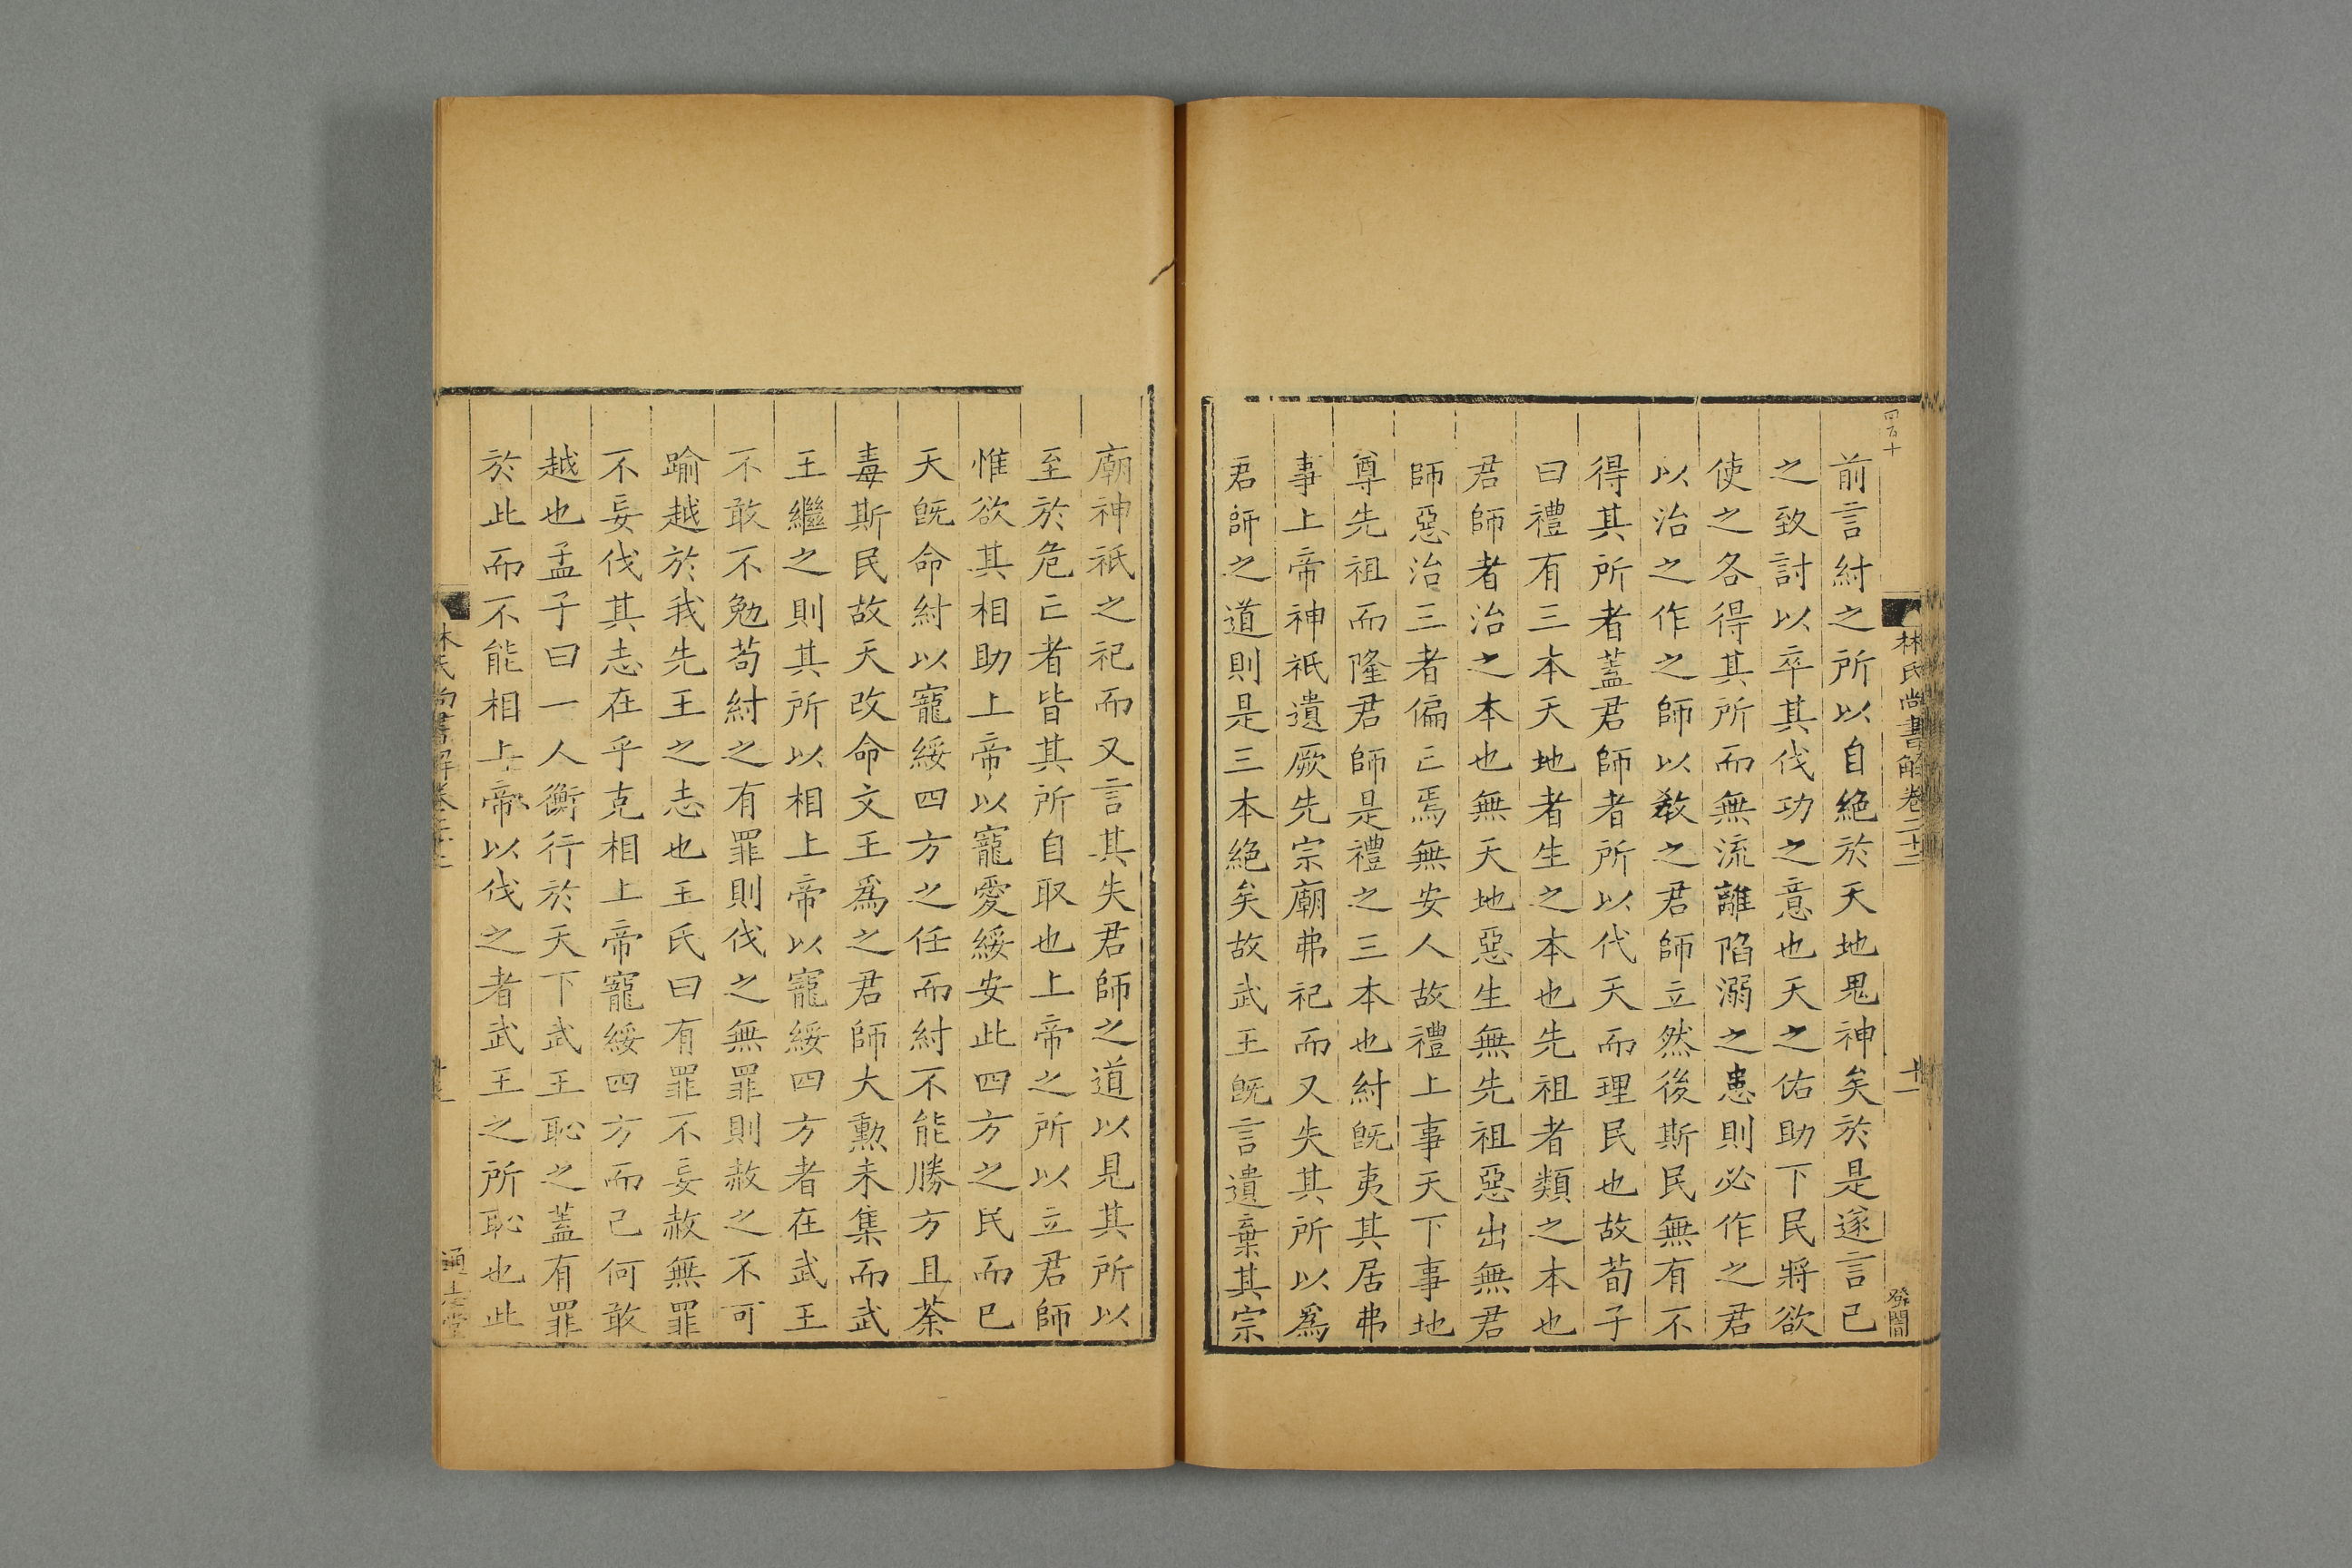 前言紂之所以自絶於天地鬼神矣於是遂言己
之致討以卒其伐功之意也天之佑助下民將欲
使之各得其所而無流離陷溺之患則必作之君
以治之作之師以敎之君師立然後斯民無有不
得其所者蓋君師者所以代天而理民也故荀子
曰禮有三本天地者生之本也先祖者類之本也
君師者治之本也無天地惡生無先祖惡出無君
師惡治三者偏亡焉無安人故禮上事天下事地
尊先祖而隆君師是禮之三本也紂旣夷其居弗
事上帝神祇遺厥先宗廟弗祀而又失其所以爲
君師之道則是三本絶矣故武王旣言遺棄其宗
林氏尚書解卷二十二
十一
廟神祇之祀而又言其失君師之道以見其所以
至於危亡者皆其所自取也上帝之所以立君師
惟欲其相助上帝以寵愛綏安此四方之民而已
天旣命紂以寵綏四方之任而紂不能勝方且荼
毒斯民故天改命文王爲之君師大勲未集而武
王繼之則其所以相上帝以寵綏四方者在武王
不敢不勉茍紂之有罪則伐之無罪則赦之不可
踰越於我先王之志也王氏曰有罪不妄赦無罪
不妄伐其志在乎克相上帝寵綏四方而已何敢
越也孟子曰一人衡行於天下武王恥之蓋有罪
於此而不能相上帝以伐之者武王之所恥也此
通志堂